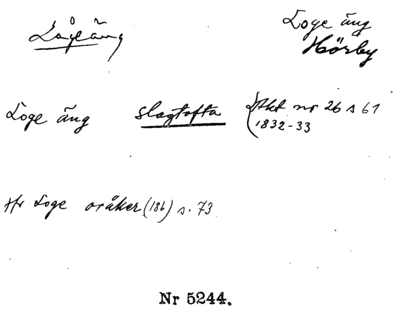 Lågeäng
Loge äng
Hörby
Loge äng slagtofta Lskt nr 26 s 61
1832-33
Hr Loge oråker (186) s. 73
Nr 5244.